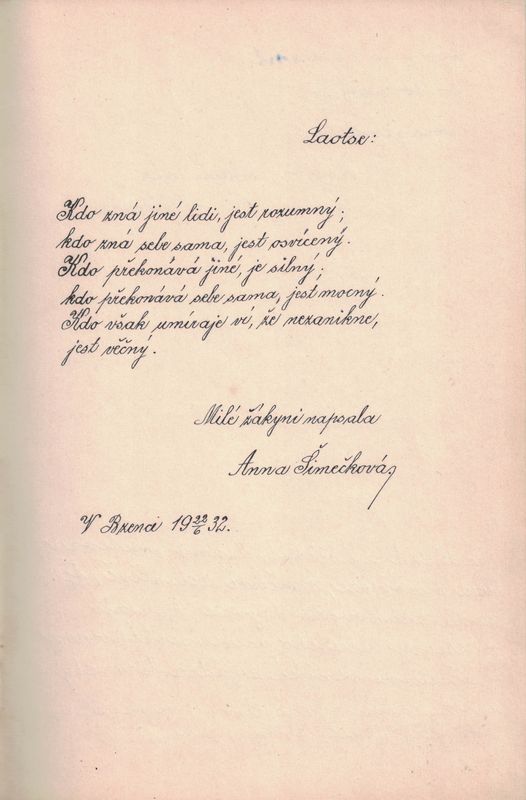 Laotse:
Kdo zná jiné lidi, jest rozumný;
kdo zná sebe sama, jest osvícený.
Kdo překonává jiné, je silný;
kdo překonává sebe sama, jest mocný.
Kdo však umíraje ví, že nezanikne,
jest věčný.
Milé žákyni napsala
Anna Šimečková
V 19 22/6 32.